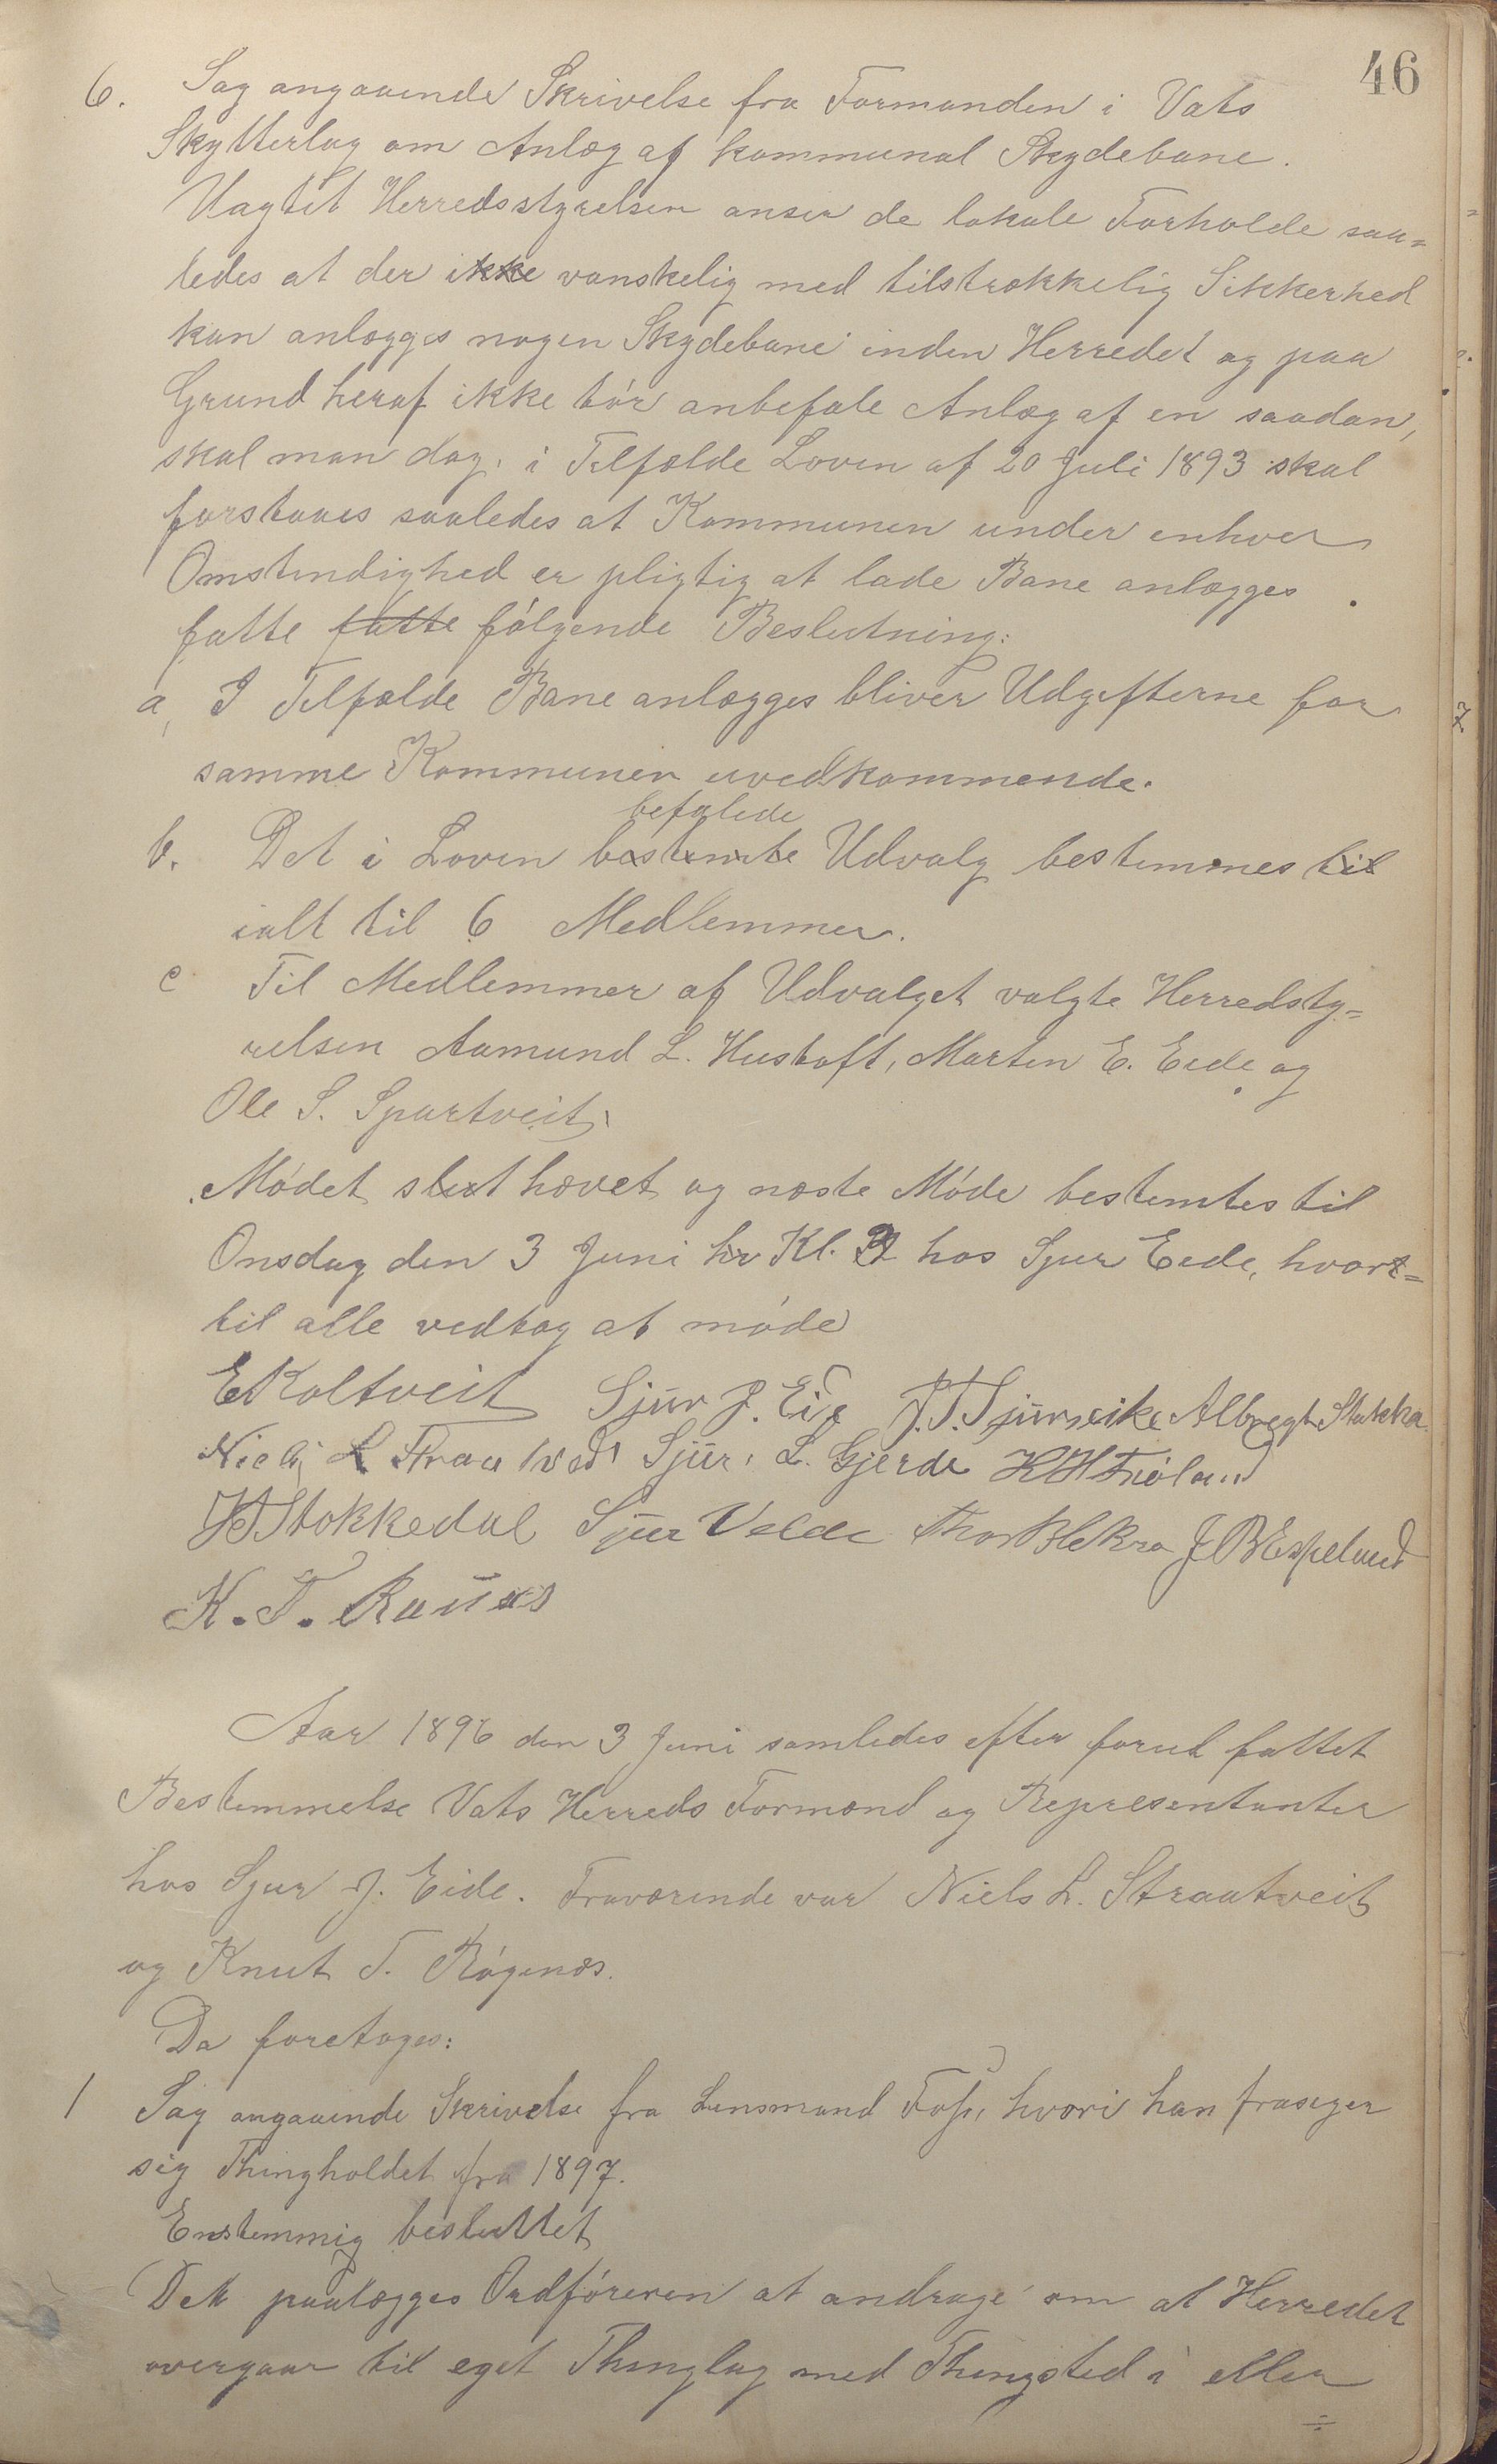 46
6. Sag angaaende Skrivelse fra Formanden i Vats
Skytterlag om Anlæg af kommunal Skydebane.
Uagtet Herredsstyrelsen anser de lokale Forholde saa=
ledes at der ikke vanskelig med tilstrækkelig Sikkerhed
kan anlægges nogen Skydebane inden Herredet og paa
Grund heraf ikke tór anbefale Anlæg af en saadan,
skal man dog, i Tilfælde Loven af 20 Juli 1893 skal
forstaaes saaledes at Kommunen under enhver
Omstendighed er pligtig at lade Bane anlægges
fatte fatte fólgende Beslutning:
a, I Tilfælde Bane anlægges bliver Udgifterne for
samme Kommunen uvedkommende.
befalede
b. Det i Loven bestemte Udvalg bestemmes til
ialt til 6 Medlemmer.
c Til Medlemmer af Udvalget valgte Herredsty=
relsen Aamund L. Hustoft, Marten E. Eide og
Ole S. Spartveit.
Módet slut hævet og næste Móde bestemtes til
Onsdag den 3 Juni Kl. hos Sjur Eide, hvor=
til alle vedtog at móde
E Koltveit Sjur J. Eide J. T. Tjurseike Albregt Stakka
Niels L Straatveit Sjur L. Gjerde K H Frøland
Stokkedal Sjur Velde Thor Blekra J B Espeland
K. T. Raunes
Aar 1896 den 3 Juni samledes efter forut fattet
Bestemmelse Vats Herreds Formænd og Representanter
hos Sjur J. Eide. Fraværende var Niels L. Straatveit
og Knut T. Rógenæs.
Da foretoges:
1 Sag angaaende Skrivelse fra Lensmand Foss, hvori han frasiger
sig Thingholdet fra 1897.
Enstemmig besluttet
Det paalægges Ordfóreren at andrage om at Herredet
overgaar til eget Thinglag med Thingsted i eller
÷